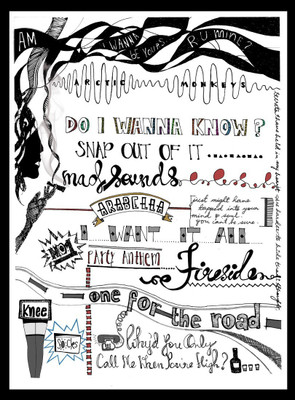 AM
I WANNA BE YOURS
R U MINE?
ARCTIC MONKEYS
DO I WANNA KNOW?
SNAP OUT OF IT
mad sounds
ARABELLA
Just might have
tapped into your
mind & soul
you can't be sure.
I WANT IT ALL
NO. 1
PARTY Anthem
Fireside
one for the road
Knee
Socks
Why'd You Only
Call Me When You're High?